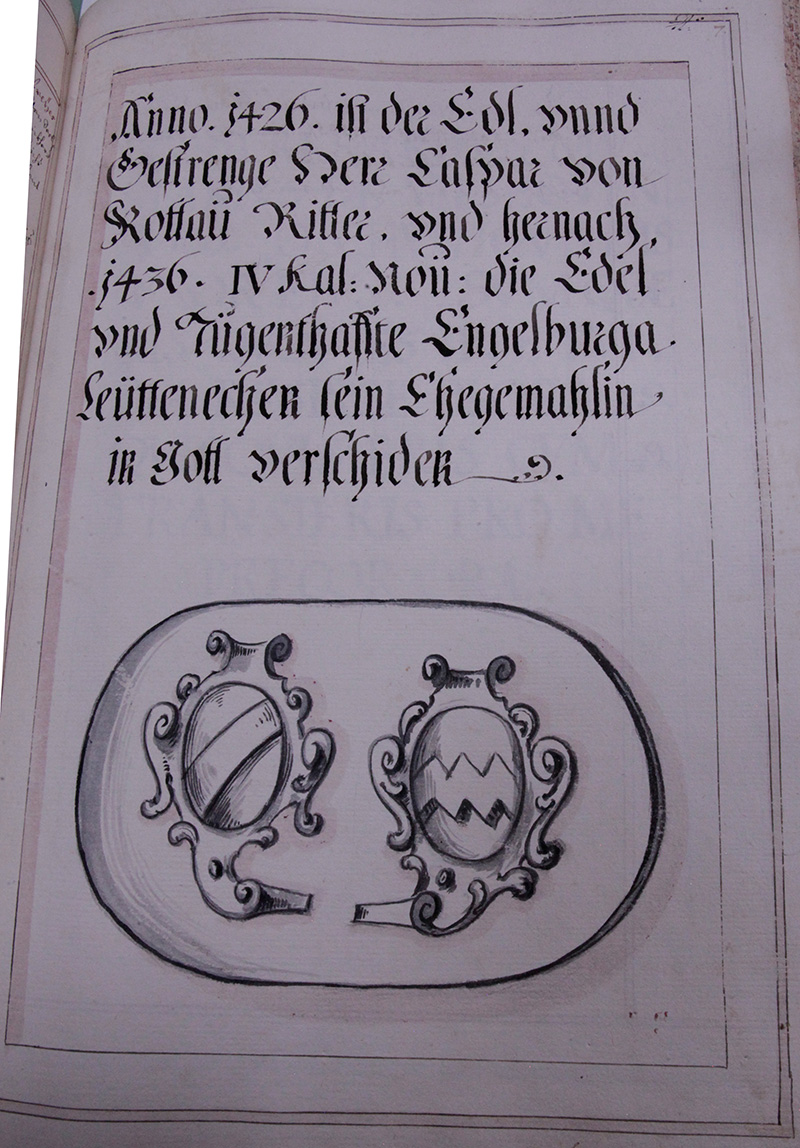 Anno. 1426. ist der Edl, vnnd
Gestrenge Herr Caspar von
Rottaŭ Ritter, vnd hernach
.1436. IV Kal: Noŭ: die Edel
vnd Tŭgenthaffte Engelburga
Leüttenecherin sein Ehegemahlin
in Gott verschiden.